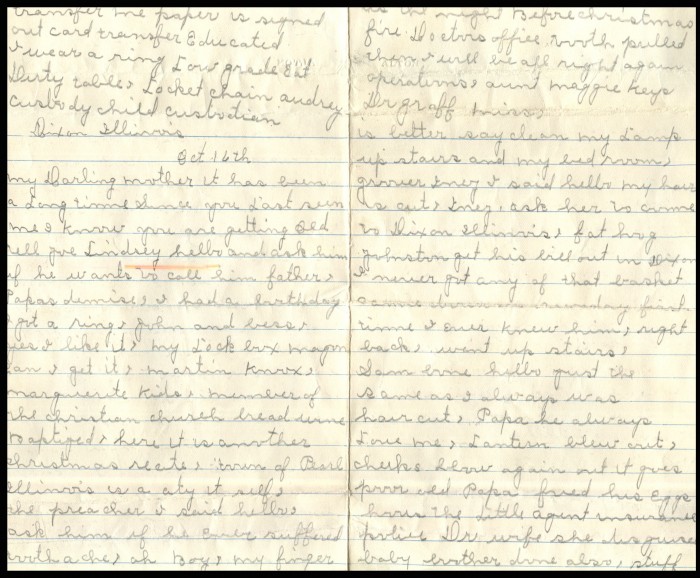 transfer me paper is signed
out card transfer Educated
I wear a ring Low grade Eat
Dirty table, Locket chain audrey
custody child custodian
Dixon Illinois
Oct 16th
my Darling mother it has been
a Long time since you Last seen
me I know you are getting old
tell Joe Lindsey hello and ask him
if he wants to call him father,
Papas demise, I had a birthday
I got a ring, John and bess,
yes I like it, my Lock box
I get it, martin Knox,
marguerite Kids, member of
the christian church bread wine
Baptized, here it is another
christmas recite, town of Pearl
Illinois is a city it self,
the preacher I said hello,
ask him if he ever suffered
tooth ache, oh Boy, my finger
as the night Before christmas
fire Doctors office, tooth pulled
then I will be all right again
operations, aunt maggie Keys
Dr graff miss,
is better say clean my Lamp
up stairs and my bed room,
grover I said hello my hair
is cut, ask her to come
to Dixon Illinois, fat hog
Johnston get his bill out in Dixon
I never got any of that basket
came down on first
time I ever knew him, right
back, went up stairs,
Sam bone hello just the
same as I always was
hair cut, Papa he always
Love me, Lantern blew out,
cheeks blow again out it goes
poor old Papa fried his Eggs
the Little agent insurance
police Dr. wife she disguise
baby brother done also, stuff